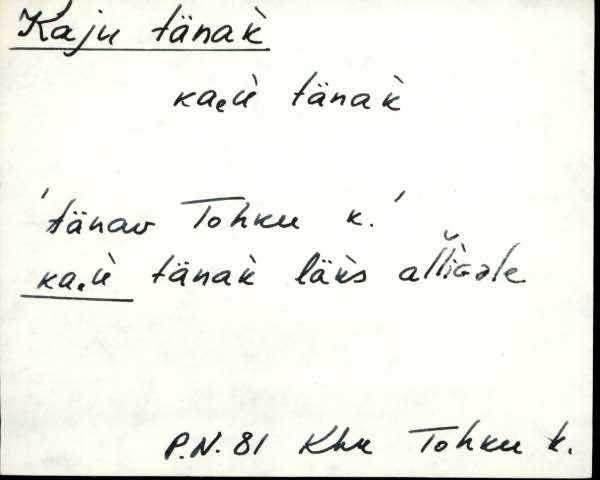 Kaju tänak̀
kaₑù tänak̀
'tänav Tohku k.'
kaₑù tänak̀ läk̀s allìkəle
P.N. 81 Khk Tohku k.